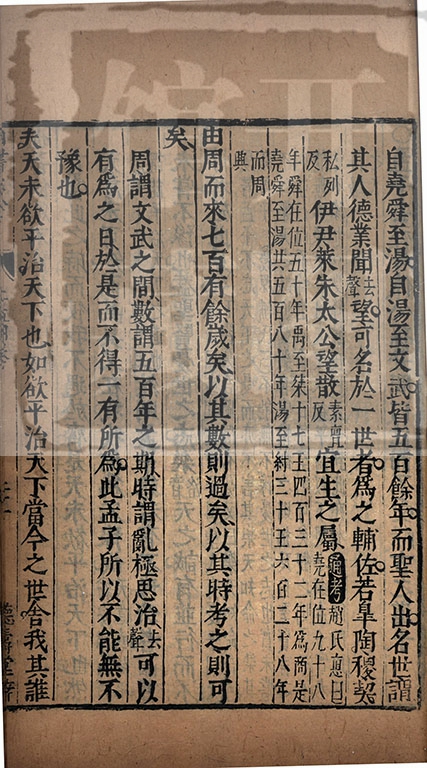 自堯舜至湯自湯至文武皆五百餘年而聖人出名世謂
其人德業聞去聲望可名於一世者爲之輔佐若皐陶稷契
私列反伊尹萊朱太公望散素亶反宜生之屬通考趙氏悳曰堯在位九十八
年舜在位五十年禹至桀十七王四百三十二年爲商是
堯舜至湯共五百八十年湯至紂三十王六百二十八年
而周興
由周而來七百有餘歲矣以其數則過矣以其時考之則可
矣
周謂文武之間數謂五百年之期時謂亂極思治去聲可以
有爲之日於是而不得一有所爲此孟子所以不能無不
豫也
夫天未欲平治天下也如欲平治天下當今之世舍我其誰